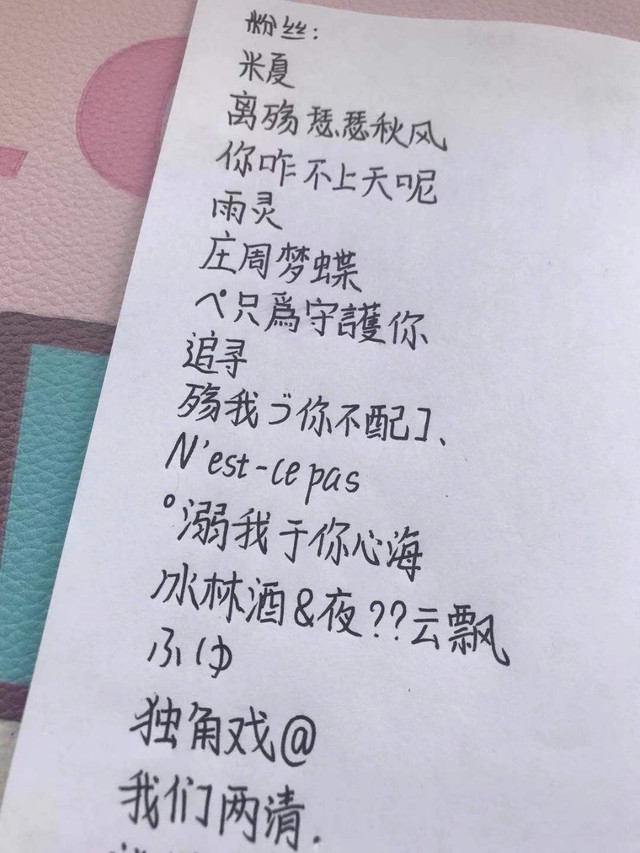 粉丝:
米夏
离殇瑟瑟秋风
你咋不上天呢
雨灵
庄周梦蝶
ペ只爲守護你
追寻
殇我づ你不配]、
N'est-ce pas
°溺我于你心海
冰林酒&夜??云飘
ふゆ
独角戏@
我们两清.